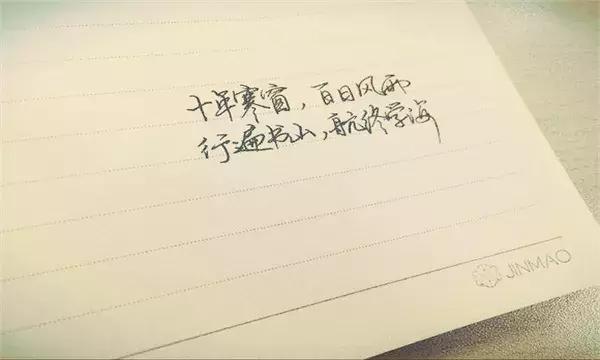 十年寒窗，百日风雨
行遍书山，航终学海
JINMAO